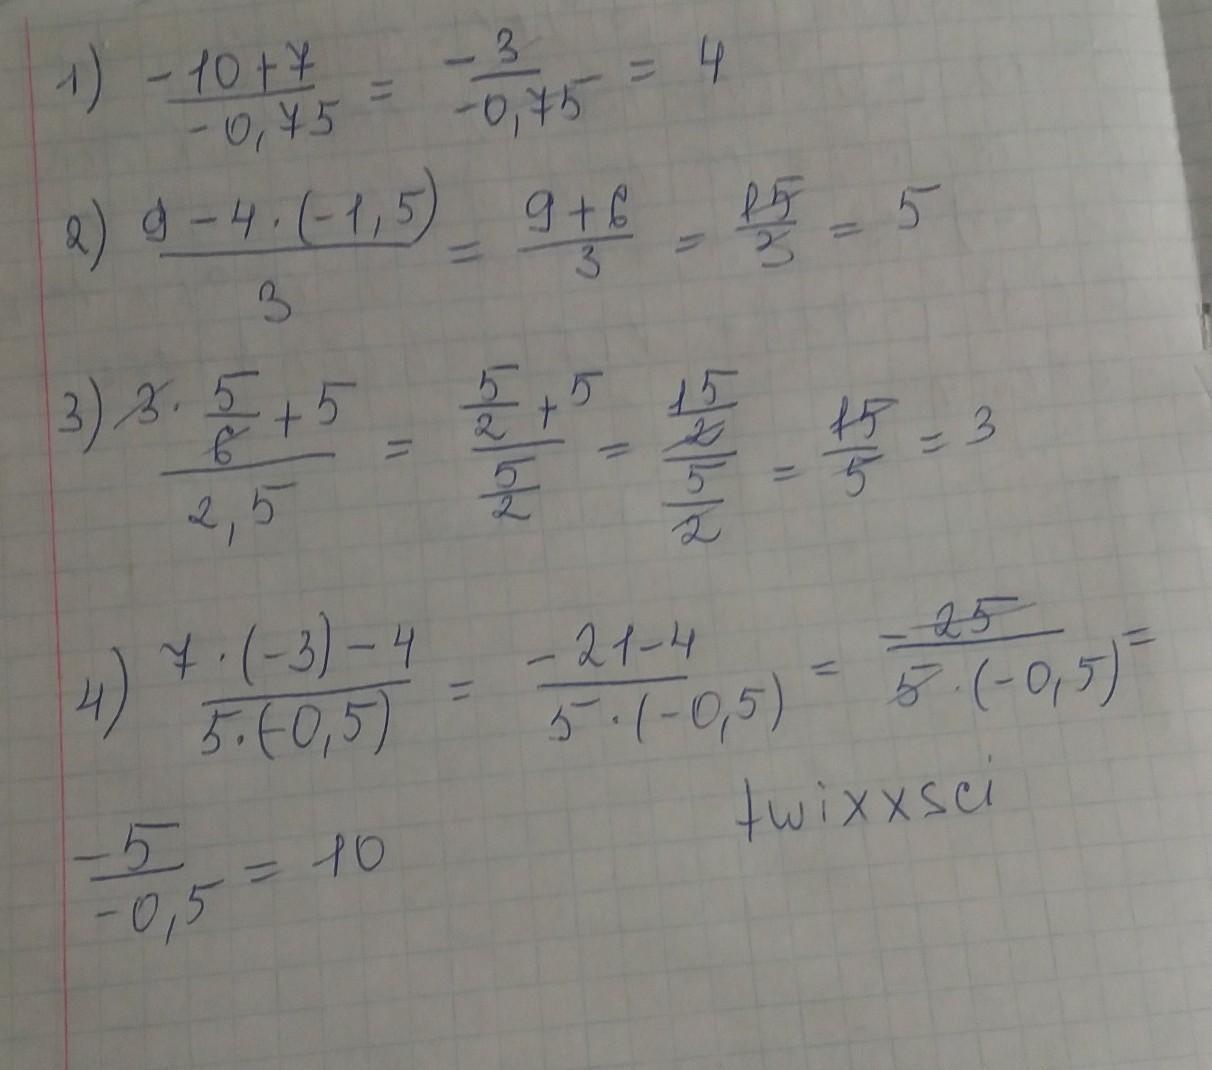 1) (-10+7)/(-0,75) = (-3)/(-0,75) = 4
2) (9-4·(-1,5))/3 = (9+6)/3 = 15/3 = 5
3) (3·5/6+5)/(2,5) = (5/2+5)/(5/2) = (15/2)/(5/2) = 15/5 = 3
4) (7·(-3)-4)/(5·(-0,5)) = (-21-4)/(5·(-0,5)) = (-25)/(5·(-0,5)) =
twixxsci
(-5)/(-0,5) = 10